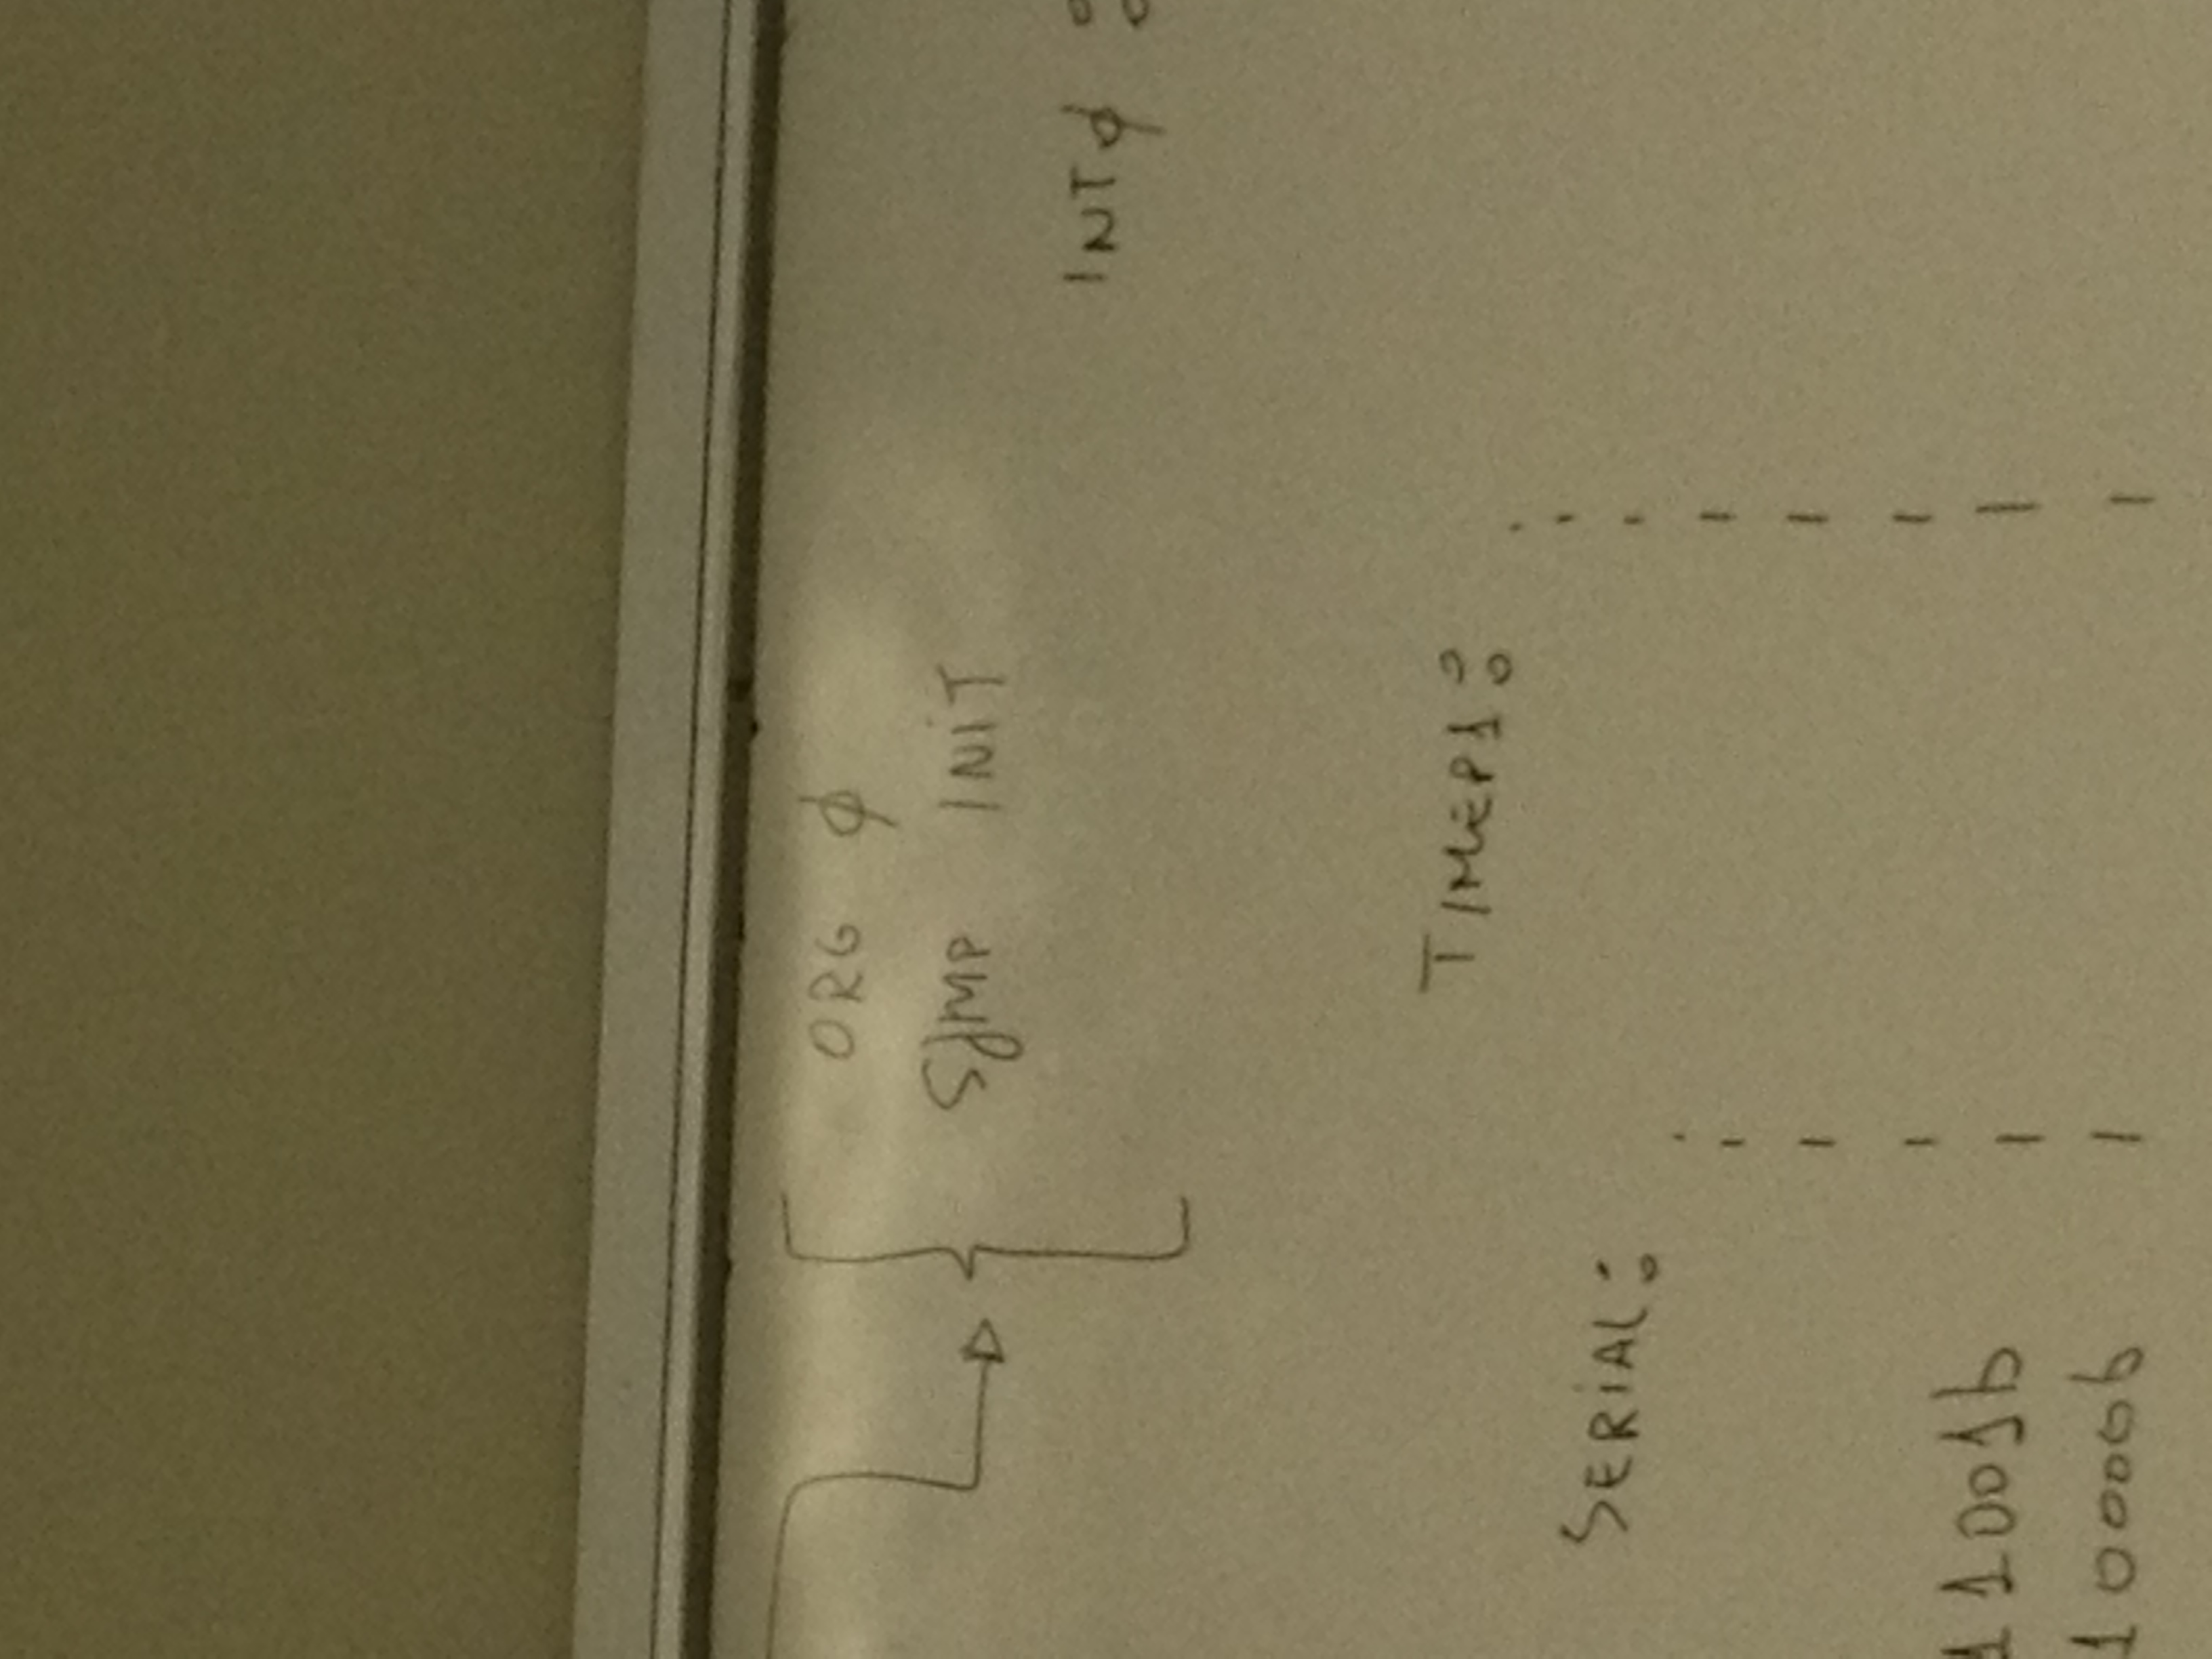 ORG Ø
SJMP INIT
INTØ :
TIMER1:
SERIAL:
11001b
10000b